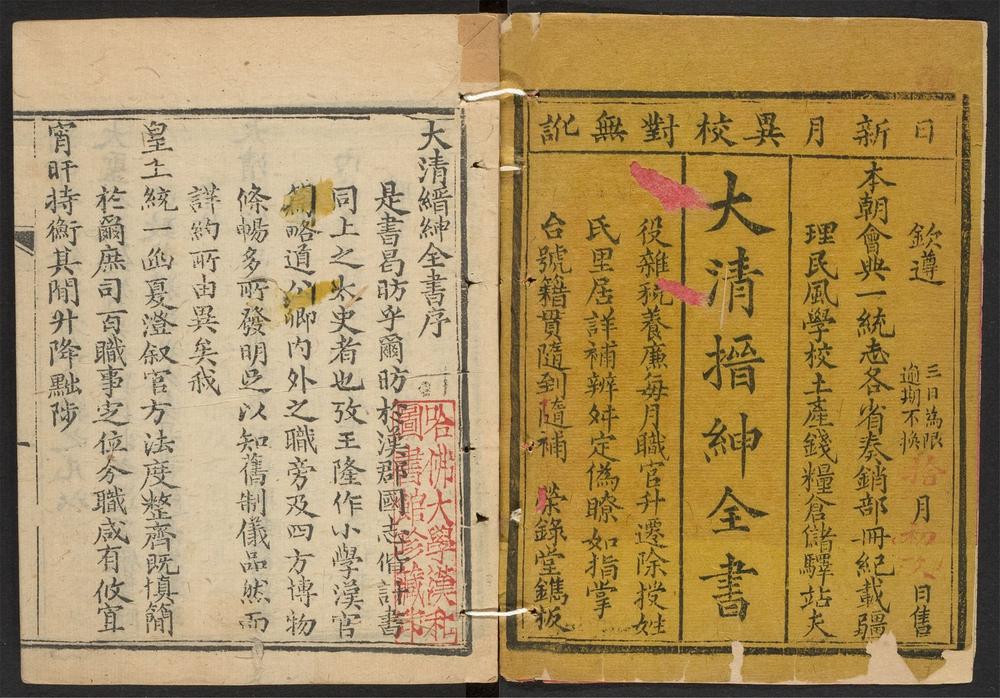 日新月異校對無訛
欽遵
三日為限
逾期不換
拾月初九日售
本朝會典一統志各省奏銷部冊紀載疆
理民風學校土產錢糧倉儲驛站夫
大清搢紳全書
役雜稅養廉每月職官升遷除授姓
氏里居詳補辨舛定偽瞭如指掌
台號籍貫隨到隨補
榮錄堂鐫板
大清縉紳全書序
是書曷昉乎爾昉於漢郡國志偕計書
同上之太史者也攷王隆作小學漢官
篇略道公卿內外之職旁及四方博物
條暢多所發明足以知舊制儀品然而
詳約所由異矣我
皇上統一函夏澄叙官方法度整齊既慎簡
於爾庶司百職事定位分職咸有攸宜
宵旰持衡其閒升降黜陟
哈佛大學漢和
圖書館珍藏印